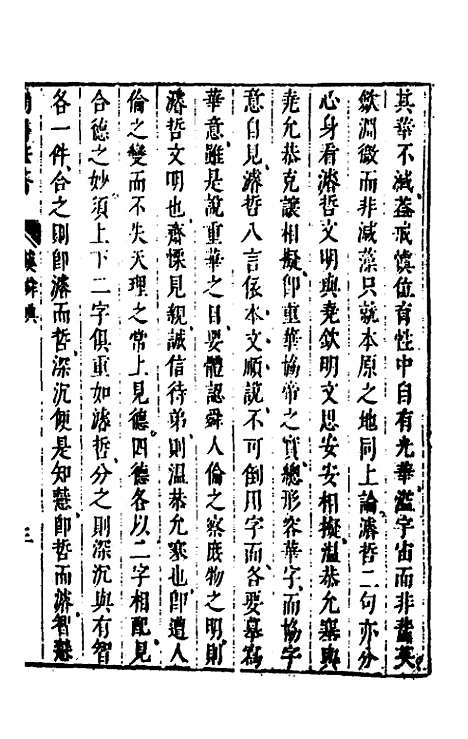 其華不減蓋戒慎位育性中自有光華溢宇宙而非舊英
斂淵微而非減藻只就本原之地同上論濬哲二句亦分
心身看濬哲文明與堯欽明文思安安相擬溫恭允塞與
堯允恭克讓相擬卽重華協帝之實總形容華字而協字
意自見濬哲八言依本文順說不可倒用字而各要摹寫
華意雖是說重華之目要體認舜人倫之察庶物之明則
濬哲文明也齋慄見親誠信待弟則溫恭允塞也卽遭人
倫之變而不失天理之常上見德四德各以二字相配見
合德之妙須上下二字俱重如濬哲分之則深沉與有智
各一件合之則卽濬而哲深沉便是知慧卽哲而濬智慧
舜典
三